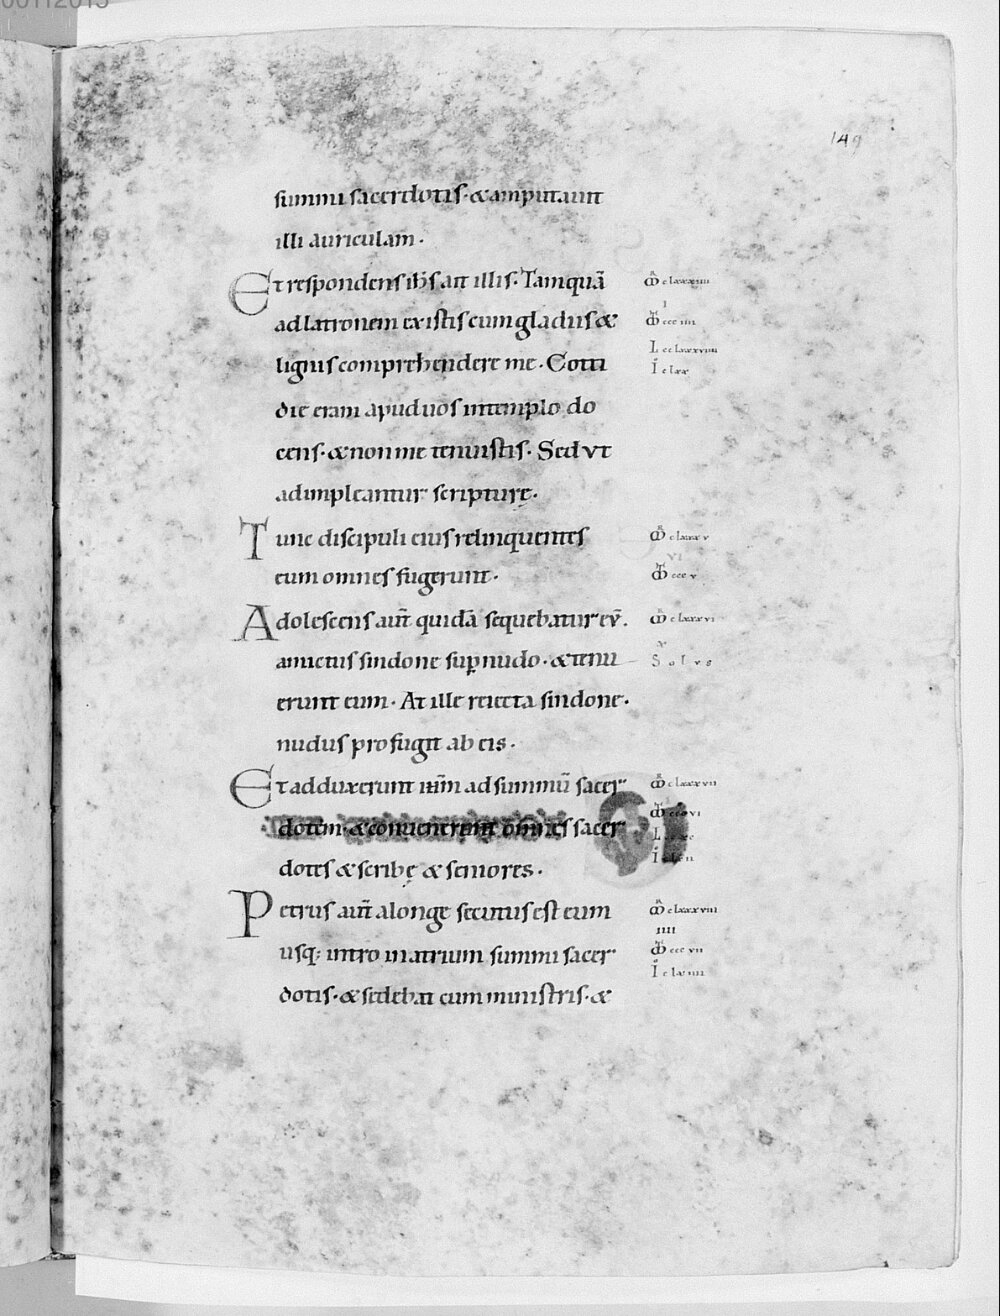 00112015
149
summi sacerdotis · & amputauit
illi auriculam ·
Et respondens ih̅s ait illis · Tamquā
ad latronem existis cum gladiis &
lignis comprehendere me · Cotti
die eram apud uos in templo do
cens · & non me tenuistis · Sed vt
adimpleantur scripturę ·
Tunc discipuli eius relinquentes
eum omnes fugerunt ·
Adolescens aut̅ quidā sequebatur ev̅ ·
amictus sindone sup nudo · & tenu
erunt eum · At ille reiecta sindone ·
nudus profugit ab eis ·
Et adduxerunt ih̅m ad summū sacer
dotem · & conuenerunt om̅es sacer
dotes & scribę & seniores ·
Petrus aut̅ a longe secutus est eum
usq; intro in atrium summi sacer
dotis · & sedebat cum ministris · &
S o l v s